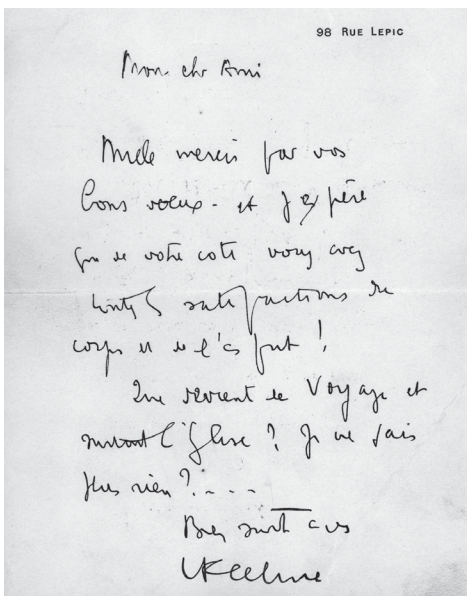 98 RUE LEPIC
Mon cher Ami
Mille mercis par vos
bons voeux - et j'espère
que de votre côté vous avez
toutes satisfactions de
corps et de l'esprit !
Que devient le Voyage et
surtout l'Eglise ? Je ne sais
plus rien ?....
Bien